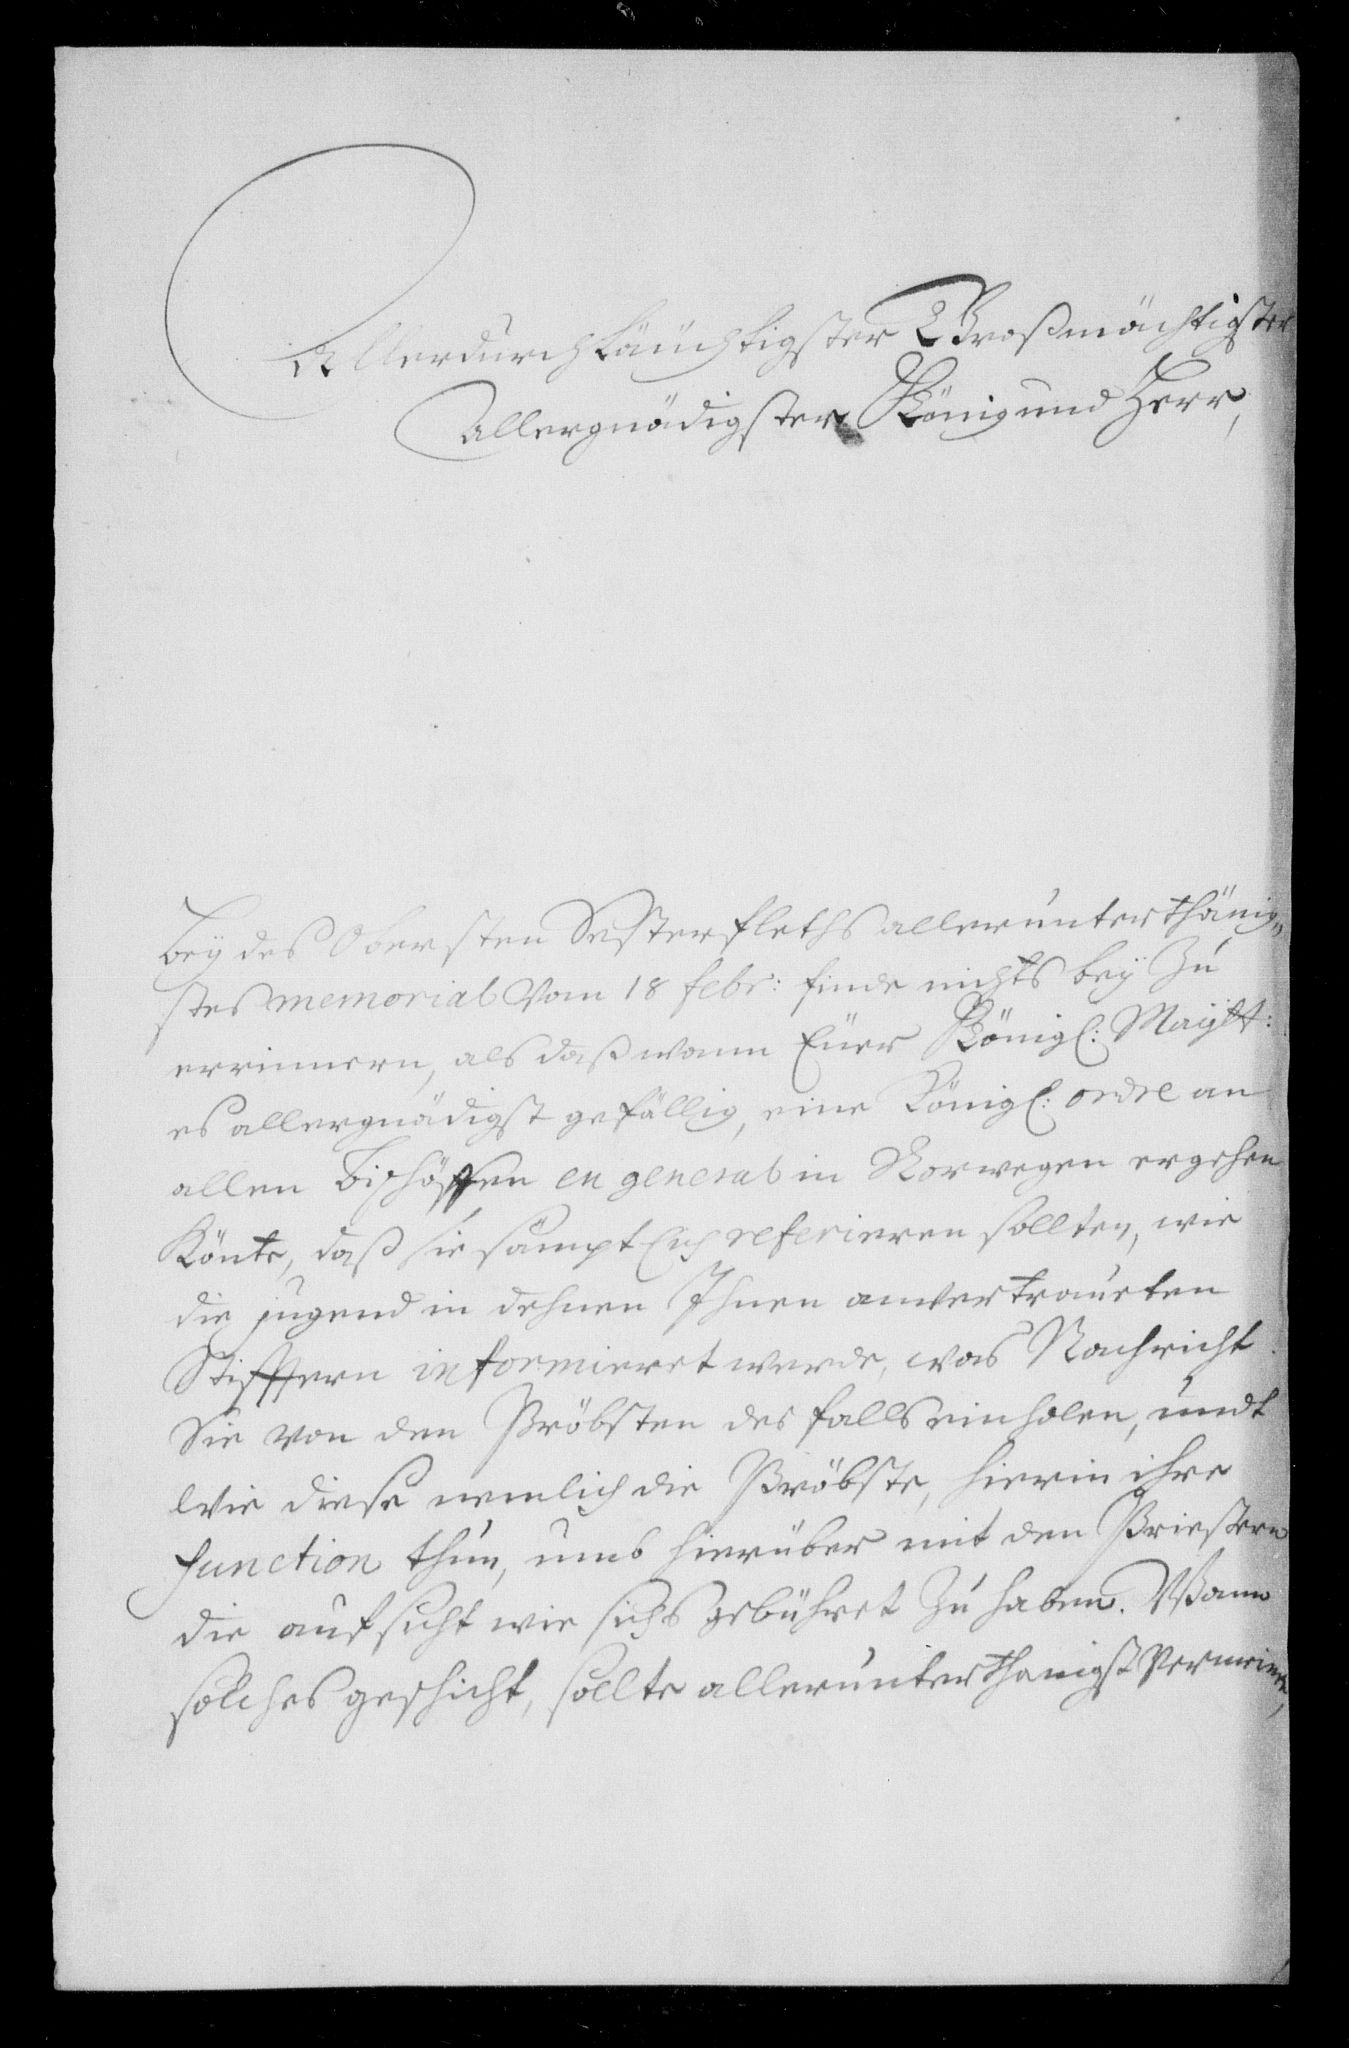 Allerdurchläuchtigster Großmächtigster
Allergnädigster König und Herr,
Bey des Obersten Sesterfleths allerunterthänig„
stes memorial Vom 18 febr: finde nichts bey Zu
errinnern, als daß wann Eüer Königl: Mayst:
es allergnädigst gefällig, eine Königl: ordre an
allen Bischöffen en general in Norwegen ergehen
Könte, daß sie sämptlich referieren sollten, wie
die jugend in dehnen Ihnen anvertraueten
Stifftern informieret werde, was Nachricht
Sie von den Pröbsten des falls einholen, undt
Wie diese nemlich die Pröbste, hierin ihre
function thun, umb hierüber mit den Priestern
die aufsicht wie sichs gebühret Zu haben. Wann
solches geschicht, sollte allerunterthänigst Vermeinen,